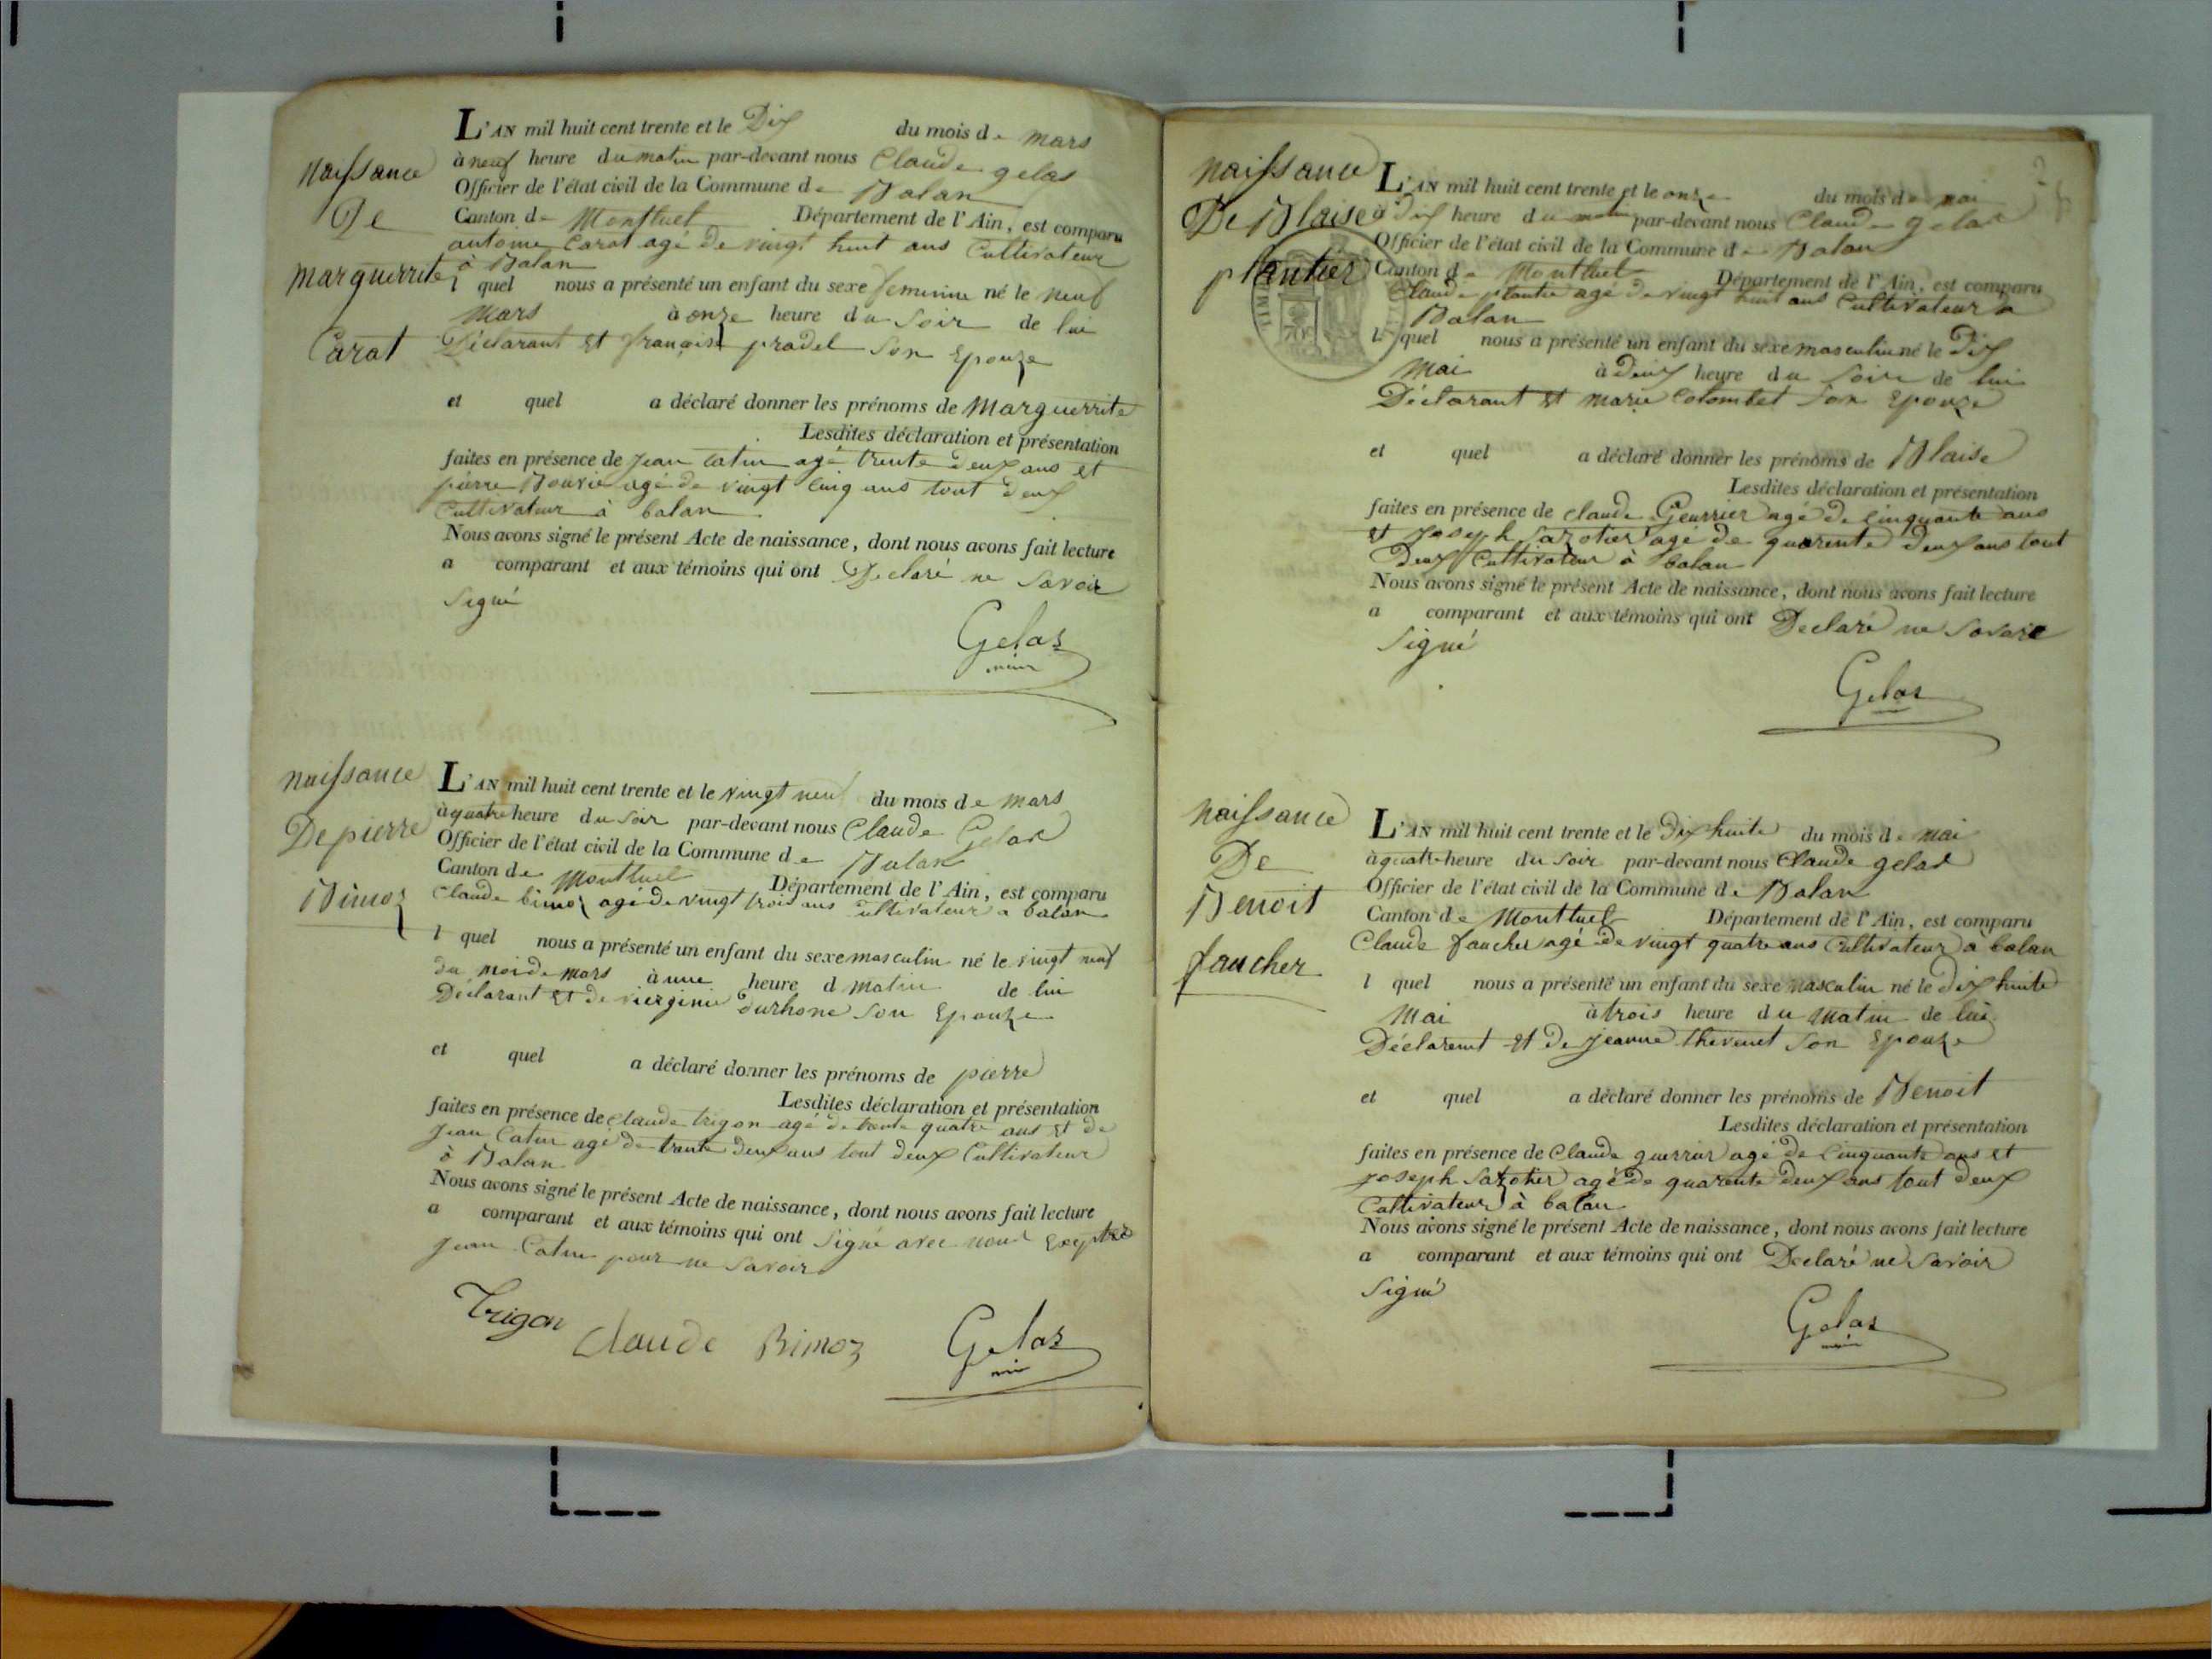 Naissance
De
Marguerrite
Carat
L'AN mil huit cent trente et le Dix du mois de mars
à neuf heure du matin par-devant nous Claude gelas
Officier de l'état civil de la Commune de Balan
Canton de Montluel Département de l'Ain, est comparu
antoine Carat agé de vingt huit ans Cultivateur
à Balan
l quel nous a présenté un enfant du sexe feminine né le neuf
Mars à onze heure du soir de lui
Déclarant et françoise pradel son Epouze
et quel a déclaré donner les prénoms de Marguerrite
Lesdites déclaration et présentation
faites en présence de jean Catin agé trente deux ans et
pierre Bouvié agé de vingt cinq ans tout deux
Cultivateur à balan
Nous avons signé le présent Acte de naissance, dont nous avons fait lecture
a comparant et aux témoins qui ont Declaré ne Savoir
Signé
Gelas
Naissance
De pierre
Bimoz
L'AN mil huit cent trente et le vingt neuf du mois de mars
à quatre heure du soir par-devant nous Claude Gelas
Officier de l'état civil de la Commune de Balan
Canton de Montluel Département de l'Ain, est comparu
Claude bimoz agé de vingt trois ans cultivateur a balan
l quel nous a présenté un enfant du sexe masculin né le vingt neuf
du moi de mars à une heure d matin de lui
Déclarant et de vierginie durhone son Epouze
et quel a déclaré donner les prénoms de pierre
Lesdites déclaration et présentation
faites en présence de Claude trigon agé de trente quatre ans et de
jean Catin agé de trente deux ans tout deux Cultivateur
à Balan
Nous avons signé le présent Acte de naissance, dont nous avons fait lecture
a comparant et aux témoins qui ont Signé avec nous Exeptée
jean Catin pour ne Savoir
Trigon Claude Bimoz Gelas
Naissance
De Blaise
plantier
L'AN mil huit cent trente et le onze du mois de mai
à dix heure du matin par-devant nous Claude gelas
Officier de l'état civil de la Commune de Balan
Canton de Montluel Département de l'Ain, est comparu
Claude plantie agé de vingt huit ans Cultivateur a
Balan
l quel nous a présenté un enfant du sexe masculin né le Dix
Mai à deux heure du soir de lui
Déclarant et marie Colombet son Epouze
et quel a déclaré donner les prénoms de Blaise
Lesdites déclaration et présentation
faites en présence de claude Geurrier agé de cinquante ans
et joseph Sazotier agé de quarente deux ans tout
deux Cultivateur à balan
Nous avons signé le présent Acte de naissance, dont nous avons fait lecture
a comparant et aux témoins qui ont Declaré ne Savoire
Signé
Gelas
Naissance
De
Benoit
faucher
L'AN mil huit cent trente et le Dix huite du mois de mai
à quatre heure du soir par-devant nous Claude gelas
Officier de l'état civil de la Commune de Balan
Canton de Montluel Département de l'Ain, est comparu
Claude faucher agé de vingt quatre ans Cultivateur à balan
l quel nous a présenté un enfant du sexe masculin né le dix huite
Mai à trois heure du matin de lui
Déclarent et De jeanne thevenet son Epouze
et quel a déclaré donner les prénoms de Benoit
Lesdites déclaration et présentation
faites en présence de Claude guerrier agé de Cinquante ans et
joseph Sazotier agé de quarente deux ans tout deux
Cultivateur à balan
Nous avons signé le présent Acte de naissance, dont nous avons fait lecture
a comparant et aux témoins qui ont Declaré ne Savoir
Signé
Gelas